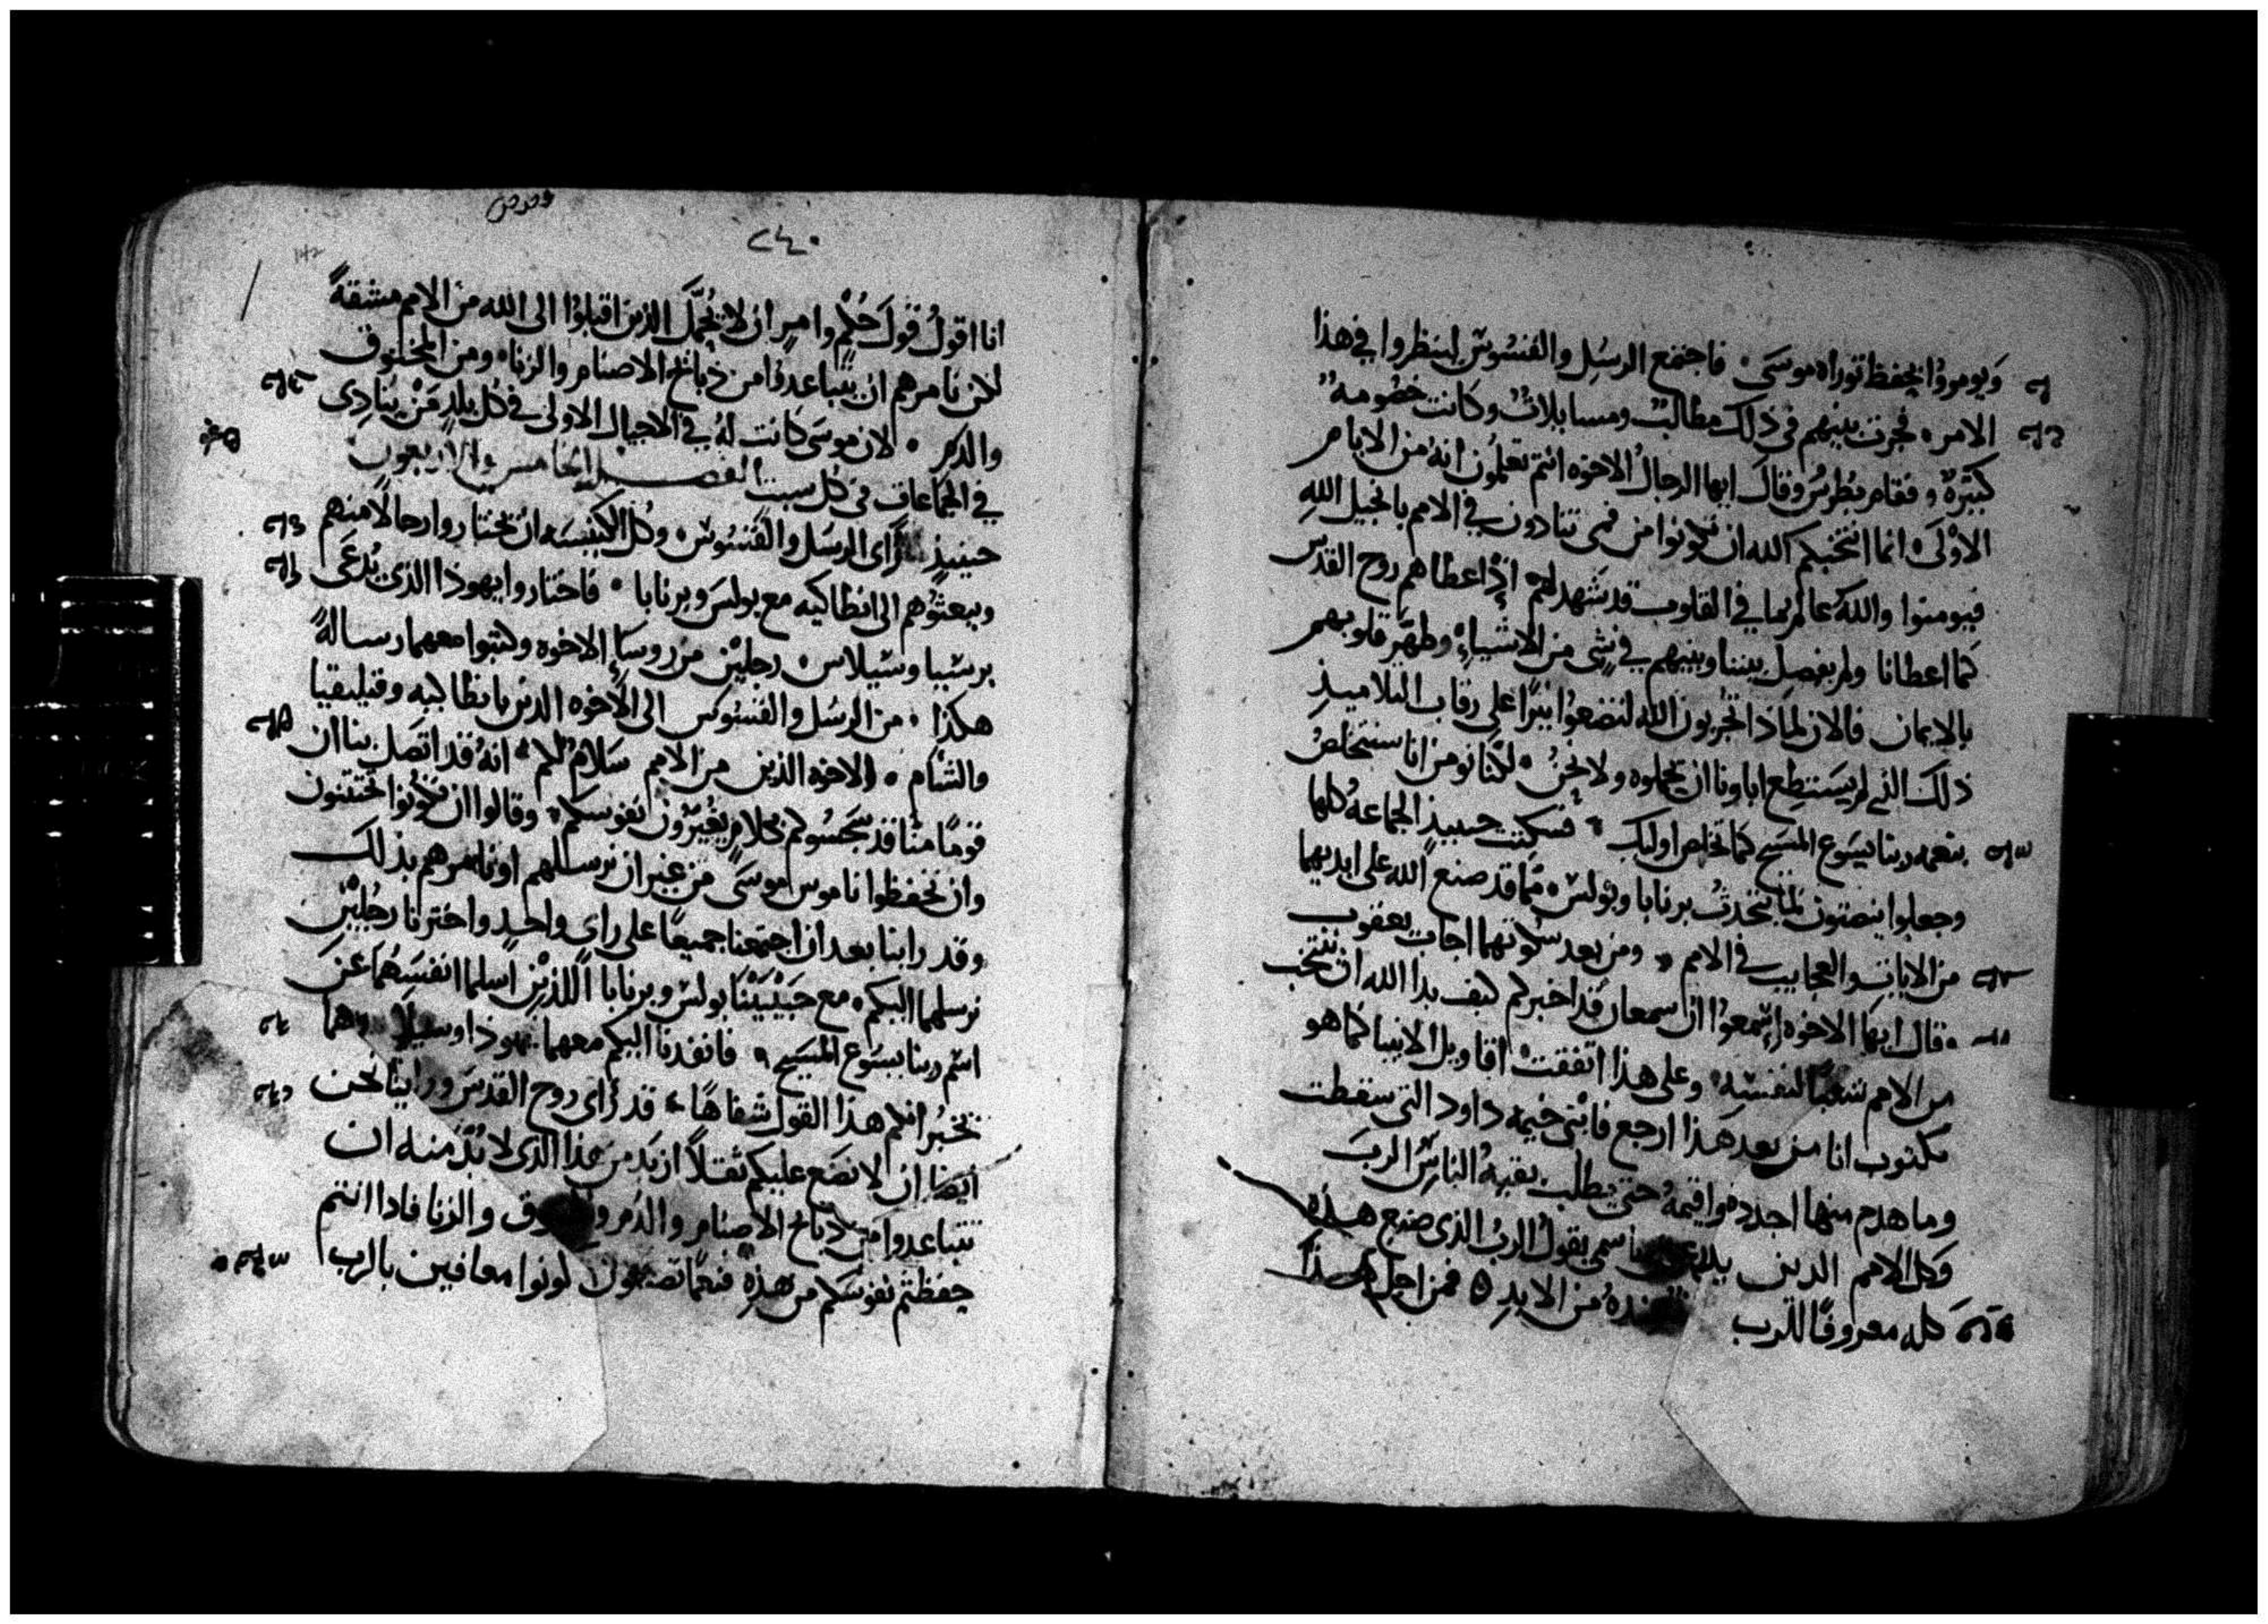 ويومروا بحفظ توراه موسى ۰ فاجتمع الرسل والقسوس لينظروا في هذا
الامر ۰ فجرت بينهم في ذلك مطالبت ومسايلات وكانت خصومة
كبيرة ۰ فقام بطرس وقال ايها الرجال الاخوه انتم تعلمون انه من الايام
الاولى ۰ انما انتخبكم الله ان تكونوا من فمى تنادون في الامم بانجيل الله
فيومنوا والله عالم بما في القلوب قد شهد لهم اذ اعطاهم روح القدس
كما اعطانا ولم يفصل بيننا وبينهم في شى من الاشياء وطهر قلوبهم
بالايمان فالان لماذا تجربون الله لتضعوا نيرا على رقاب التلاميذ
ذلك الذي لم يستطع اباونا ان يحملوه ولا نحن ۰ لكنا نومن انا سنتخلص
بنعمه ربنا يسوع المسيح كما تخلص اوليك ۰ فسكتت حينيذ الجماعه كلها
وجعلوا ينصتون لما يتحدث برنابا وبولس ۰ مما قد صنع الله على ايديهما
من الايات والعجايب في الامم ۰ ومن بعد سكوتهما اجاب يعقوب
۰ قال ايها الاخوه اسمعوا ان سمعان قد اخبركم كيف بدا الله ان ينتخب
من الامم شعبا لنفسه ۰ وعلى هذا اتفقت اقاويل الانبيا كما هو
مكتوب انا من بعد هذا ارجع فابنى خيمه داود التى سقطت
وما هدم منها اجدده واقيمه حتى يطلب بقيه الناس الرب
وكل الامم الدين باسمى يقول الرب الذى صنع هذه
كله معروفا للرب من الابد ۰ فمن اجل هذا
۲٤۰
انا اقول قول حكم وامر ان لا نحمل الذين اقبلوا الى الله من الامم مشقة
لكن نامرهم ان يتباعدوا من ذبائح الاصنام والزناه ومن المخنوق
والدم ۰ لان موسى كانت له في الاجيال الاولى في كل بلد من ينادى
في الجماعات فى كل سبت الفصل الخامس والاربعون
حينيذ راى الرسل والقسوس ۰ وكل الكنيسه ان يختاروا رجالا منهم
ويبعثوهم الى انطاكيه مع بولس وبرنابا ۰ فاختاروا يهوذا الذى يدعى
برسيبا وسيلاس ۰ رجلين من روساء الاخوه وكتبوا معهما رسالة
هكذا ۰ من الرسل والقسوس الى الاخوه الذين بانطاكيه وقيليقيا
والشام ۰ الاخوه الذين من الامم سلام لكم ۰ انه قد اتصل بنا ان
قوما منا قد سجسوكم بكلام يغيرون نفوسكم ۰ وقالوا ان تكونوا تختتنون
وان تحفظوا ناموس موسى من غير ان نرسلهم او نامرهم بذلك
وقد راينا بعد ان اجتمعنا جميعا على راى واحد واخترنا رجلين
نرسلهما اليكم ۰ مع حبيبينا بولس وبرنابا اللذين اسلما انفسهما عن
اسم ربنا يسوع المسيح ۰ فانفدنا اليكم معهما يهوذا وسيلا وهما
يخبرانكم هذا القول شفاها ۰ قد راى روح القدس وراينا نحن
ايضا ان لا نضع عليكم ثقلا ازيد من هذا الذى لا بد منه ان
تتباعدوا من ذبائح الاصنام والدم والزنا فاذا انتم
حفظتم نفوسكم من هذه فنعما تصنعون كونوا معافين بالرب